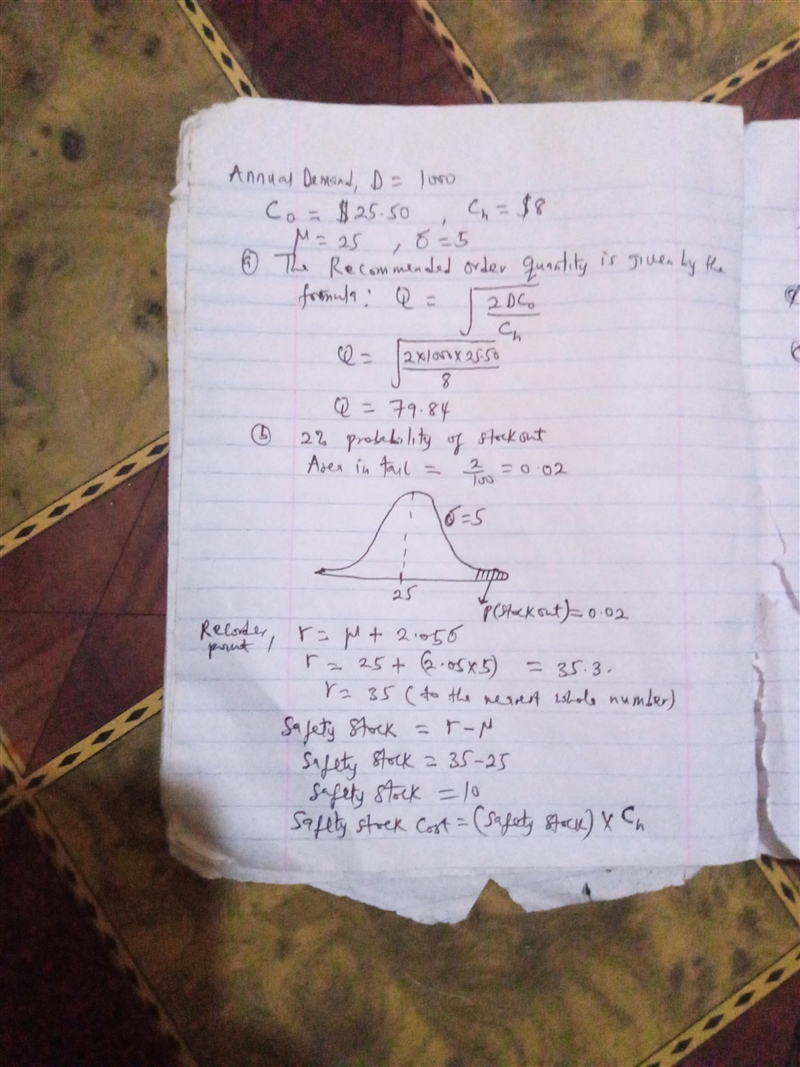 Annual Demand, D = 1000
C₀ = $25.50 , Cₕ = $8
μ = 25 , σ = 5
(a) The Recommended order quantity is given by the
formula: Q = √(2DC₀/Cₕ)
Q = √(2×1000×25.50/8)
Q = 79.84
(b) 2% probability of stockout
Area in tail = 2/100 = 0.02
σ=5
25
P(stockout)=0.02
Recorder point, r = μ + 2.05σ
r = 25 + (2.05×5) = 35.3.
r = 35 (to the nearest whole number)
Safety stock = r-μ
Safety stock = 35-25
Safety stock = 10
Safety stock cost = (Safety stock) × Cₕ